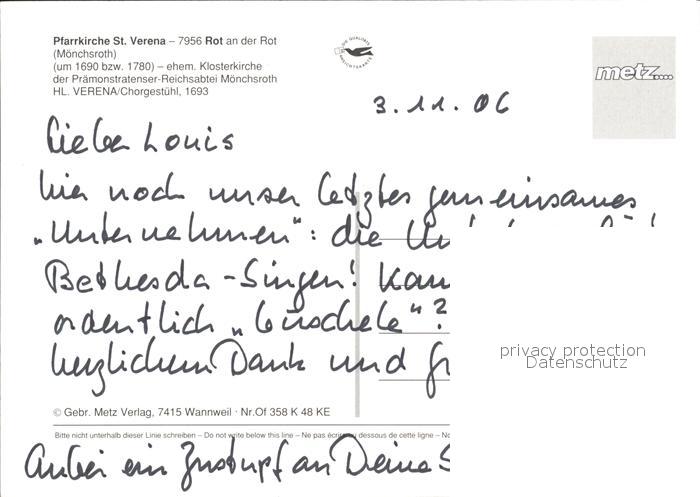 Pfarrkirche St. Verena – 7956 Rot an der Rot
(Mönchsroth)
(um 1690 bzw. 1780) – ehem. Klosterkirche
der Prämonstratenser-Reichsabtei Mönchsroth
HL. VERENA/Chorgestühl, 1693
metz....
3.11.06
Lieber Louis
hier noch unser letztes gemeinsames
„Unternehmen“: die
Bethesda-Singen!
ordentlich „ “?
herzlichem Dank und
privacy protection
Datenschutz
© Gebr. Metz Verlag, 7415 Wannweil · Nr.Of 358 K 48 KE
Bitte nicht unterhalb dieser Linie schreiben – Do not write below this line – Ne pas écrire au dessous de cette ligne –
Anbei ein Zustupf an Deine S